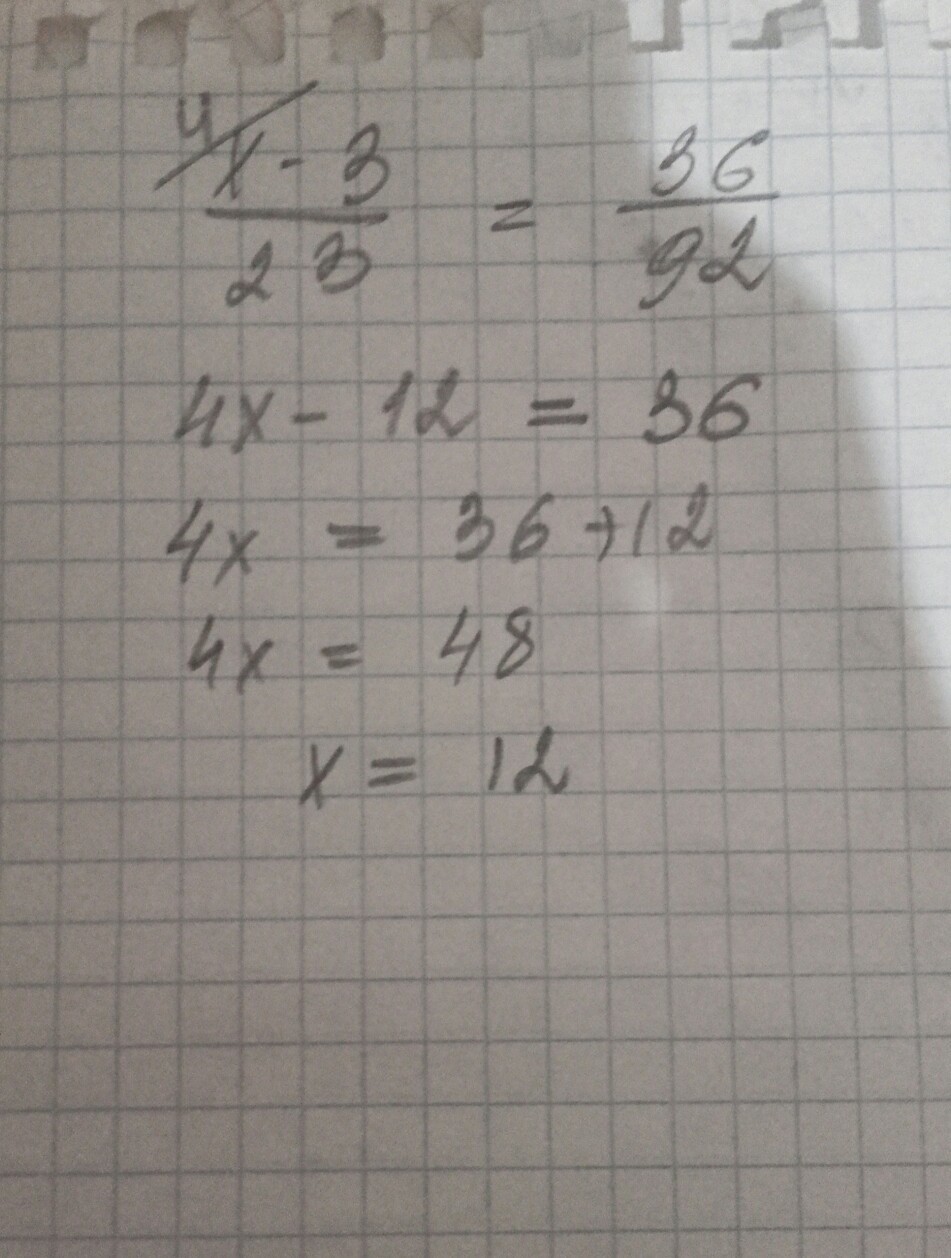 4/ x - 3 / 23 = 36 / 92
4x - 12 = 36
4x = 36 + 12
4x = 48
x = 12